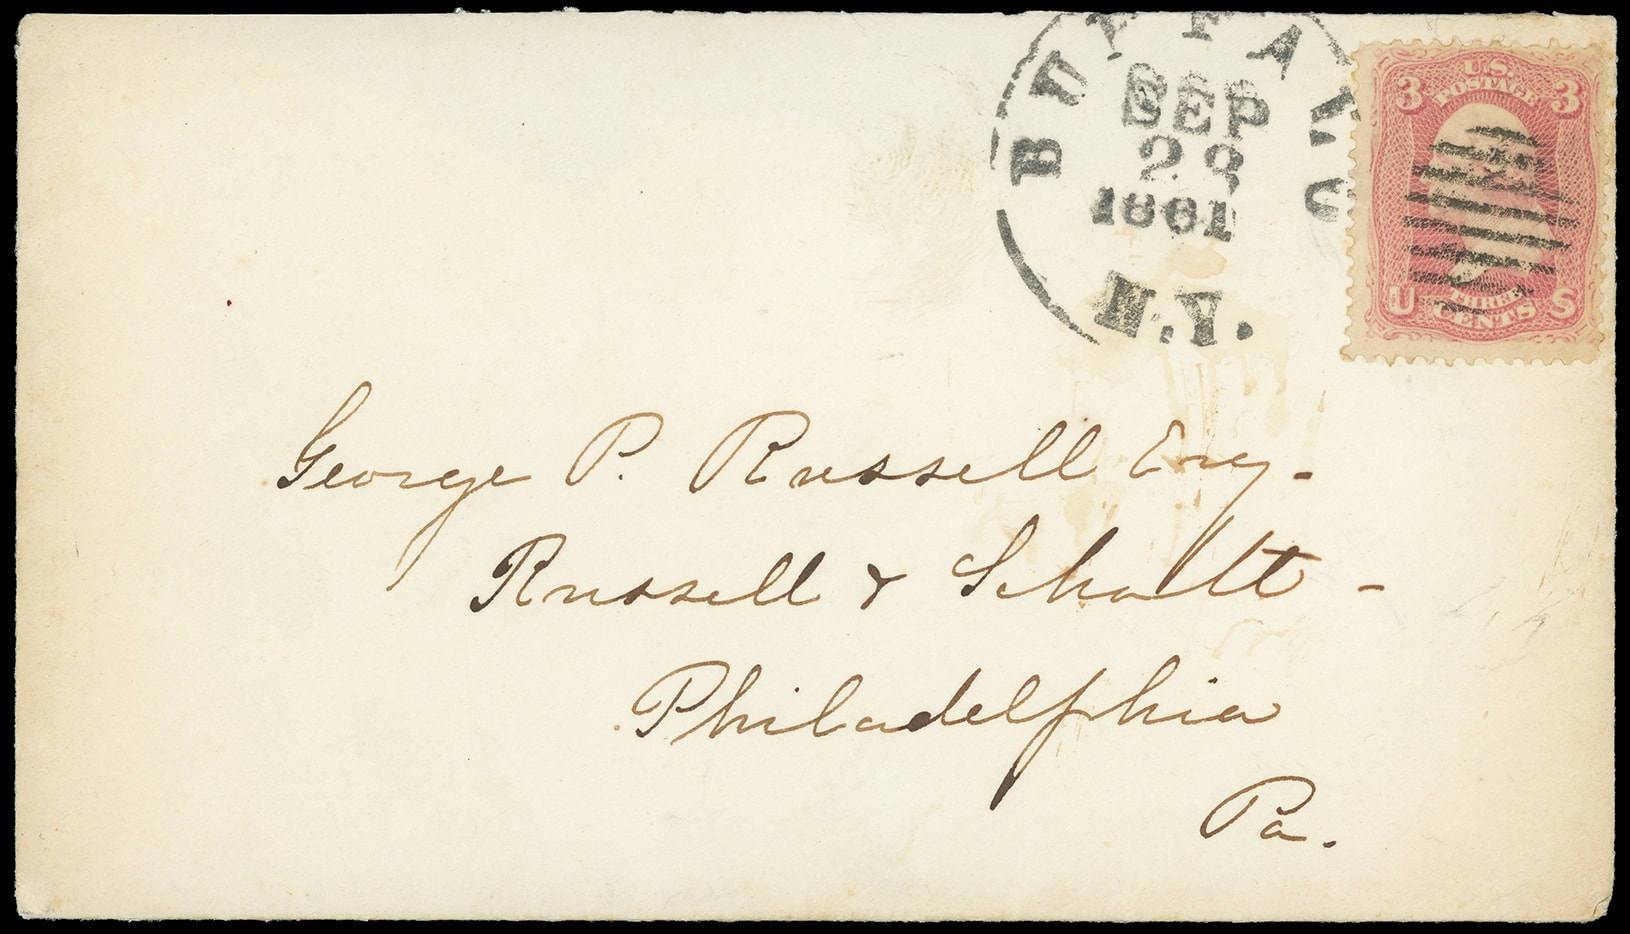 BUFFALO
SEP
1861
N.Y.
3 U.S. 3
POSTAGE
U THREE S
CENTS
George P. Russell Esq.
Russell & Schott
Philadelphia
Pa.